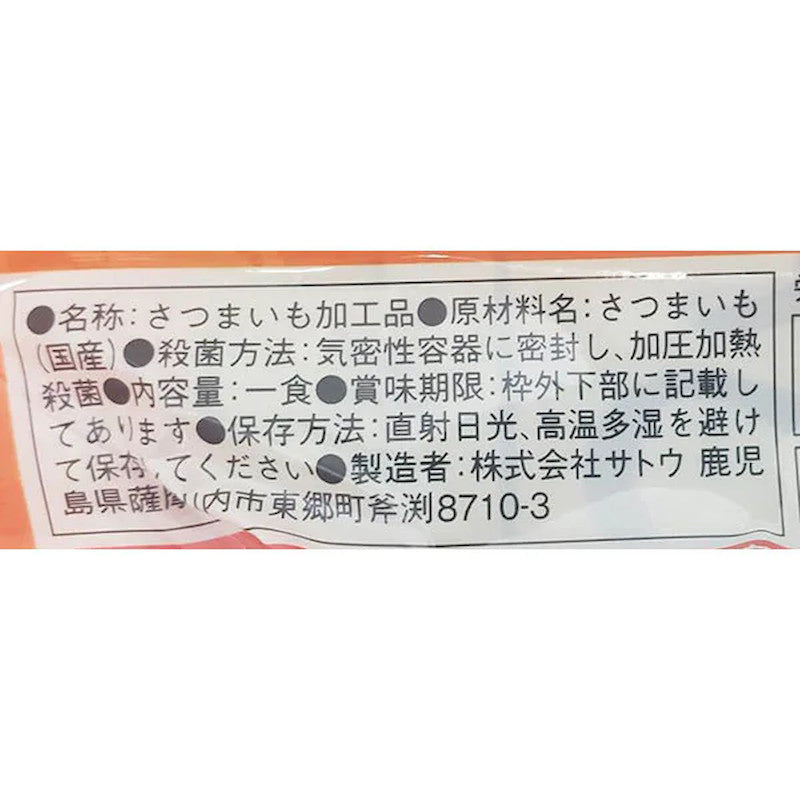 ●名称:さつまいも加工品●原材料名:さつまいも
(国産)●殺菌方法:気密性容器に密封し、加圧加熱
殺菌●内容量:一食●賞味期限:枠外下部に記載し
てあります●保存方法:直射日光、高温多湿を避け
て保存してください●製造者:株式会社サトウ 鹿児
島県薩摩川内市東郷町斧渕8710-3